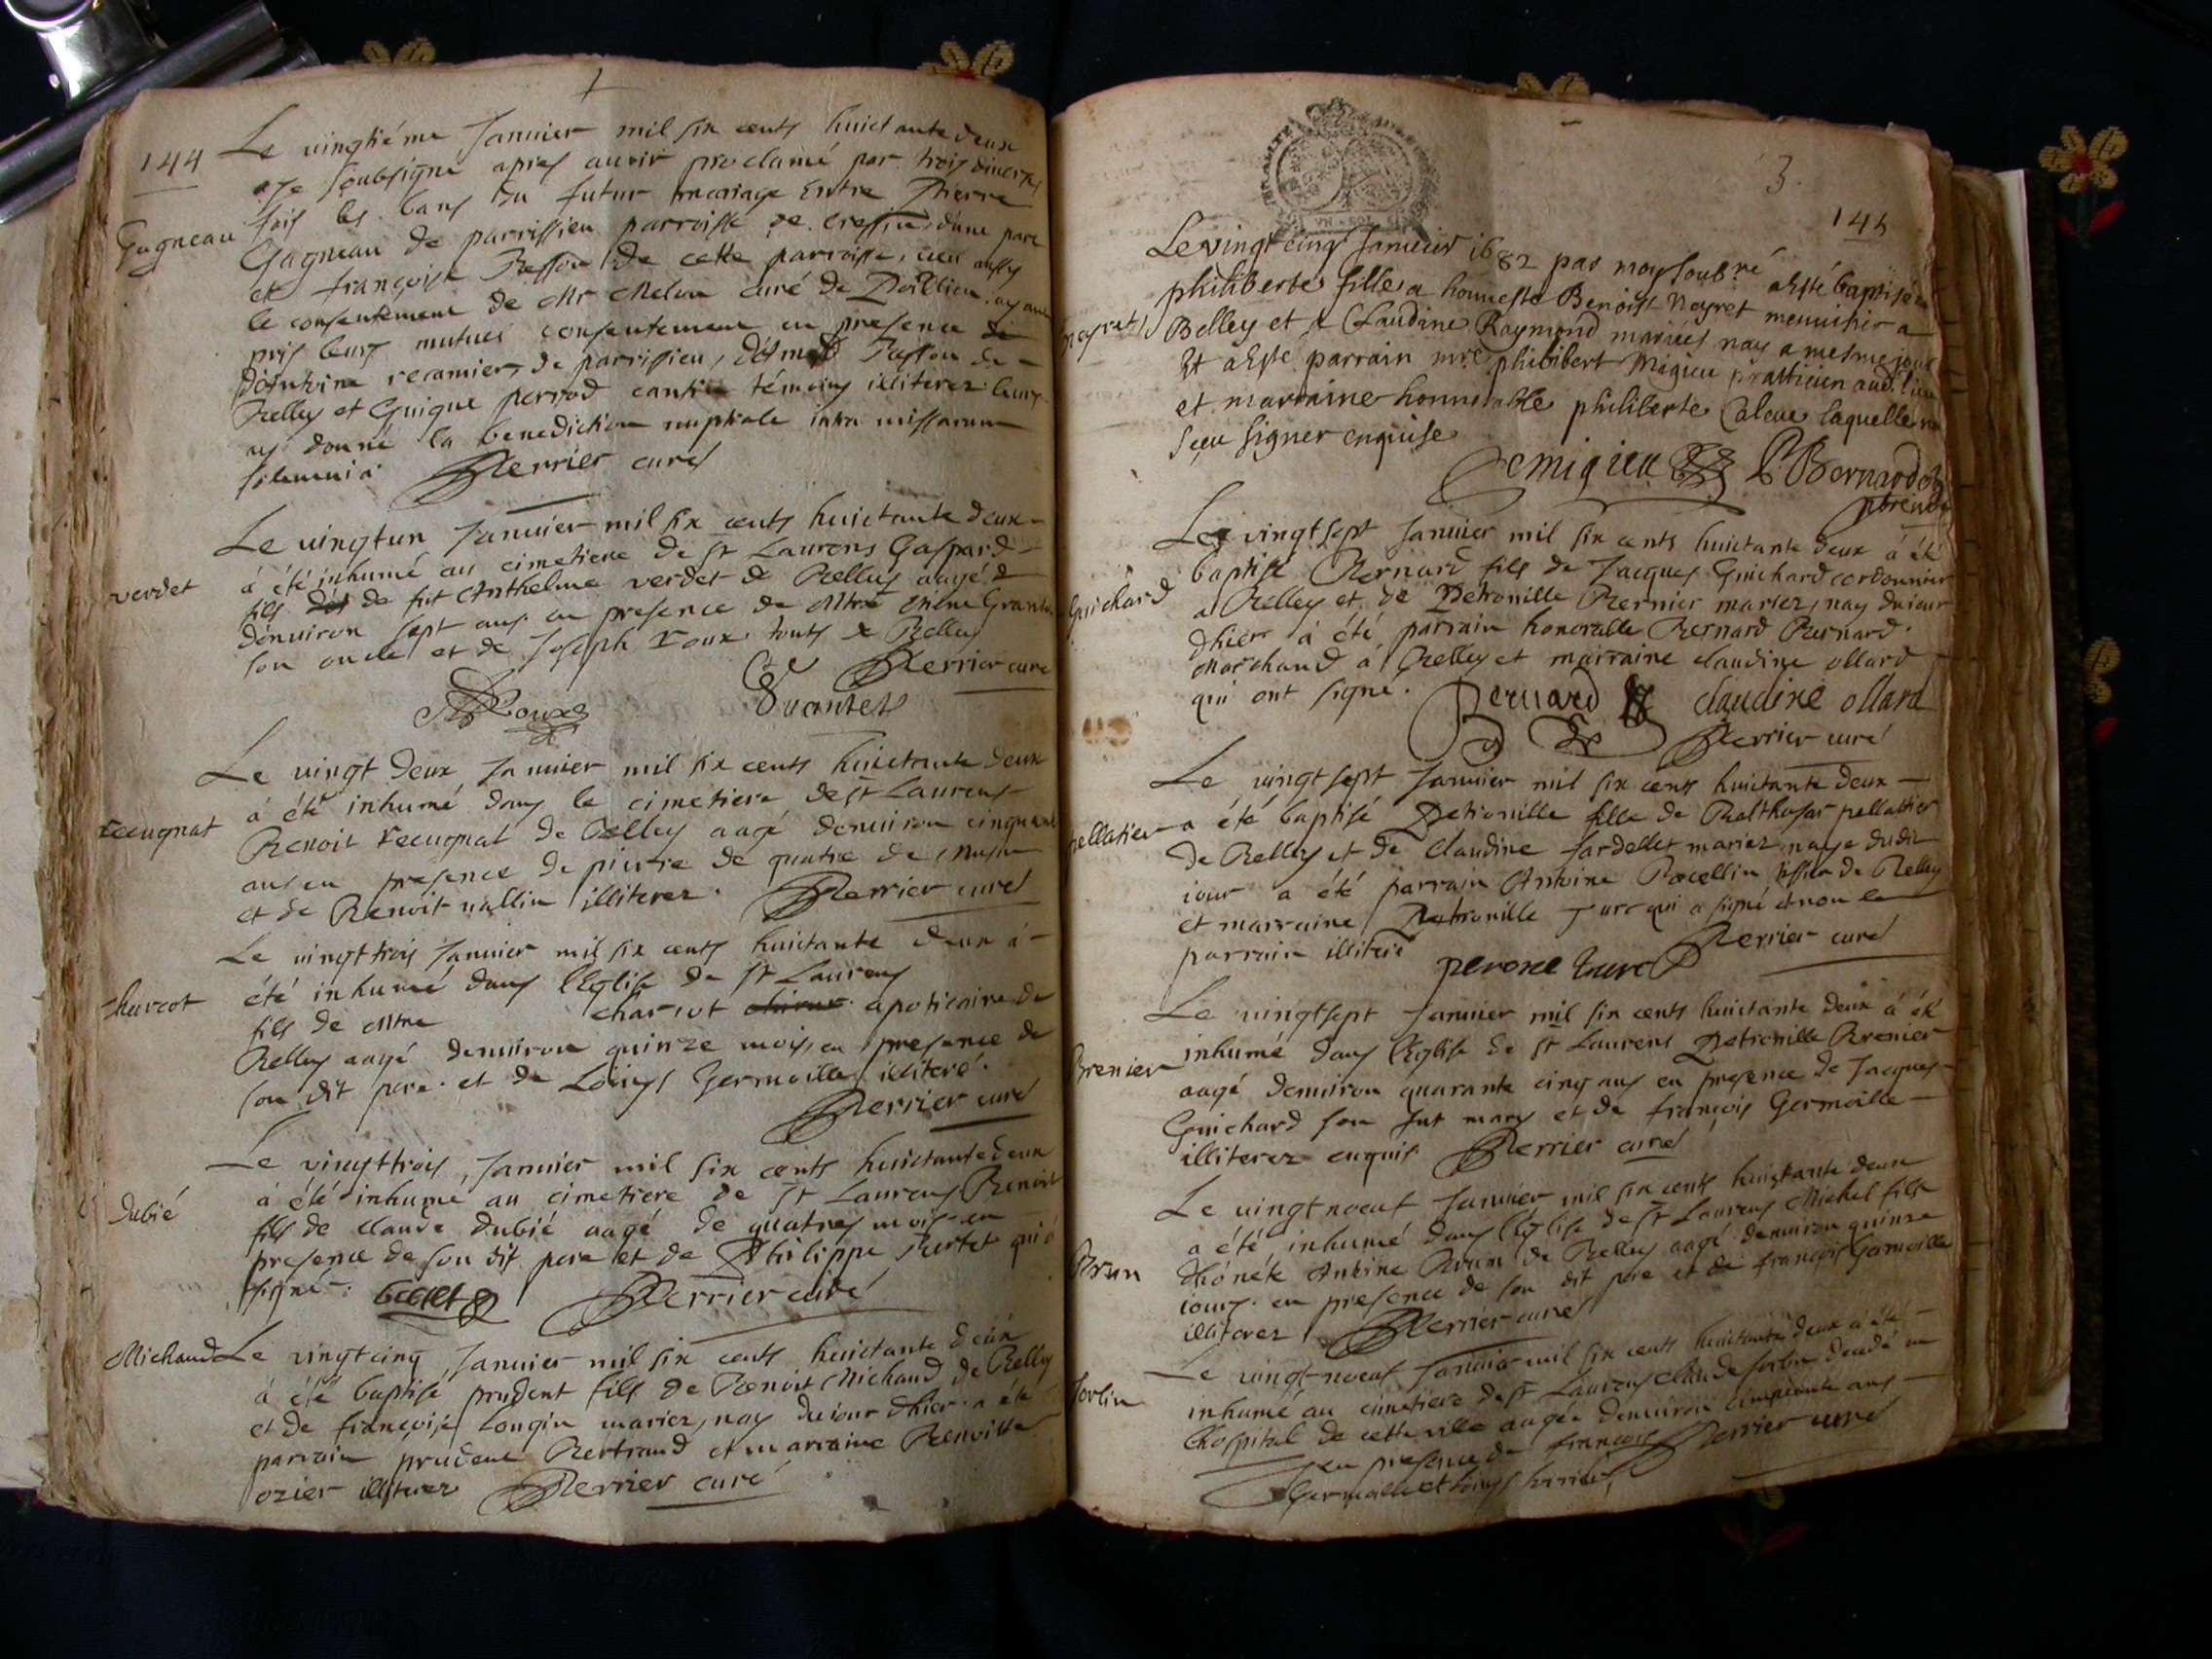 144
Le vingtiéme Januier mil six cents huictante deux
je soubsigné apres auoir proclamé par trois diuerses
fois les bans du futur mariage entre Pierre
Gagneau
Gagneau de parrissieu parroisse de cressieu d'une part
et françoise Besson de cette parroisse, ueu aussy
le consentement de Mr Melon curé de ay ant
pris leurs mutuel consentement en presence de
d'Antoine recamier de parrissieu, Besson de
Belley et Guigue perrod témoins illiterez leurs
ay donné la benediction nuptiale intra missarum
solemnia. Perrier curé
Le uingtun Januier mil six cents huictante deux
verdet
à été inhumé au cimetiere de St Laurens Gaspard
fils de fut Anthelme verdet de Belley aagé
denuiron sept ans en presence de Mtre
son oncle et de Joseph roux touts de Belley
Perrier curé
Roux
Le uingt deux Januier mil six cents huictante deux
recugnat
à été inhumé dans le cimetiere de St Laurens
Benoit recugnat de Belley aagé denuiron cinquante
ans en presence de pierre de quatre de
et de Benoit uallin illiterez. Perrier curé
Le uingttrois Januier mil six cents huictante deux à
charcot
été inhumé dans l'Eglise de St Laurens
fils de Mtre charcot apoticaire de
Belley aagé denuiron quinze mois, en presence de
son dit pere et de Louys Germaille illiteré.
Perrier curé
Le vingttrois Januier mil six cents huictante deux
dubié
à été inhumé au cimetiere de St Laurens Benoit
fils de claude dubié aagé de quatres mois en
presence de son dit pere et de Philippe qui à
signé. Perrier curé
Michaud
Le vingtcinq Januier mil six cents huictante deux
à été baptisé prudent fils de Benoit Michaud de Belley
et de françoise Longin mariez, nay du iour dhier a été
parrain prudent Bertrand et marraine Benoitte
ozier illiterez Perrier curé
3.
145
Le vingt cinq Januier 1682 par moy soubné a esté baptisée
philiberte fille a honneste Benoist Neyret menusier a
neyret
Belley et de Claudine Raymond mariés nay a mesme jour
Et a esté parrain mre philibert Migieu pratticien aud. lieu
et marraine honnorable philiberte laquelle na
sçeu signer enquise
Demigieu P. Bernard
Le vingtsept Januier mil six cents huictante deux à été
Guichard
baptisé Bernard fils de Jacques Guichard cordonnier
a Belley et de Petronille Bernier mariez, nay du iour
dhier à été parrain honorable Bernard Bernard
Marchand à Belley et marraine claudine ollard
qui ont signé. Bernard claudine ollard
Perrier curé
Le vingtsept Januier mil six cents huictante deux
pellatier
a été baptisé Petronille fille de Balthasar pellattier
de Belley et de claudine fardellet mariez naye dudit
iour a été parrain Antoine Pocellin tissier de Belley
et marraine Petronille Turc qui a signé et non le
parrain illiteré Perrier curé
perone turc
Le vingtsept Januier mil six cents huictante deux à été
Brenier
inhumé dans l'Eglise de St Laurens Petronille Brenier
aagé denuiron quarante cinq ans en presence de Jacques
Guichard son fut mary et de françois Germaille
illiterez enquis Perrier curé
Le uingt noeuf Januier mil six cents huictante deux
a été inhumé dans l'Eglise de St Laurens Michel fils
Brun
d'honéte Antoine Brun de Belley aagé denuiron quinze
iours en presence de son dit pere et de françois Germaille
illiterez Perrier curé
Le uingt noeuf Januier mil six cents huictante deux a été
Jorlin
inhumé au cimetiere de St Laurens claude Jorlin decedé en
l'hospital de cette ville aagée denuiron cinquante ans
en presence de françois Perrier curé
Germaille et